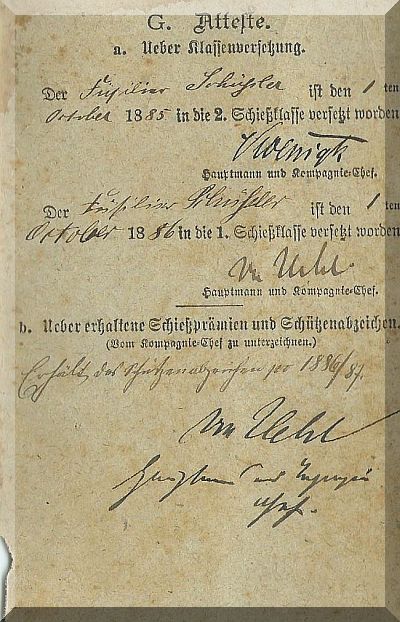 G. Atteste.
a. Ueber Klassenversetzung.
Der Füsilier Schüssler ist den 1ten
October 1885 in die 2. Schießklasse versetzt worden
Hauptmann und Kompagnie-Chef.
Der Füsilier Schüssler ist den 1ten
October 1886 in die 1. Schießklasse versetzt worden
Hauptmann und Kompagnie-Chef.
b. Ueber erhaltene Schießprämien und Schützenabzeichen.
(Vom Kompagnie-Chef zu unterzeichnen.)
Erhält das Schützenabzeichen pro 1886/87.
Hauptmann und Kompagnie
Chef.